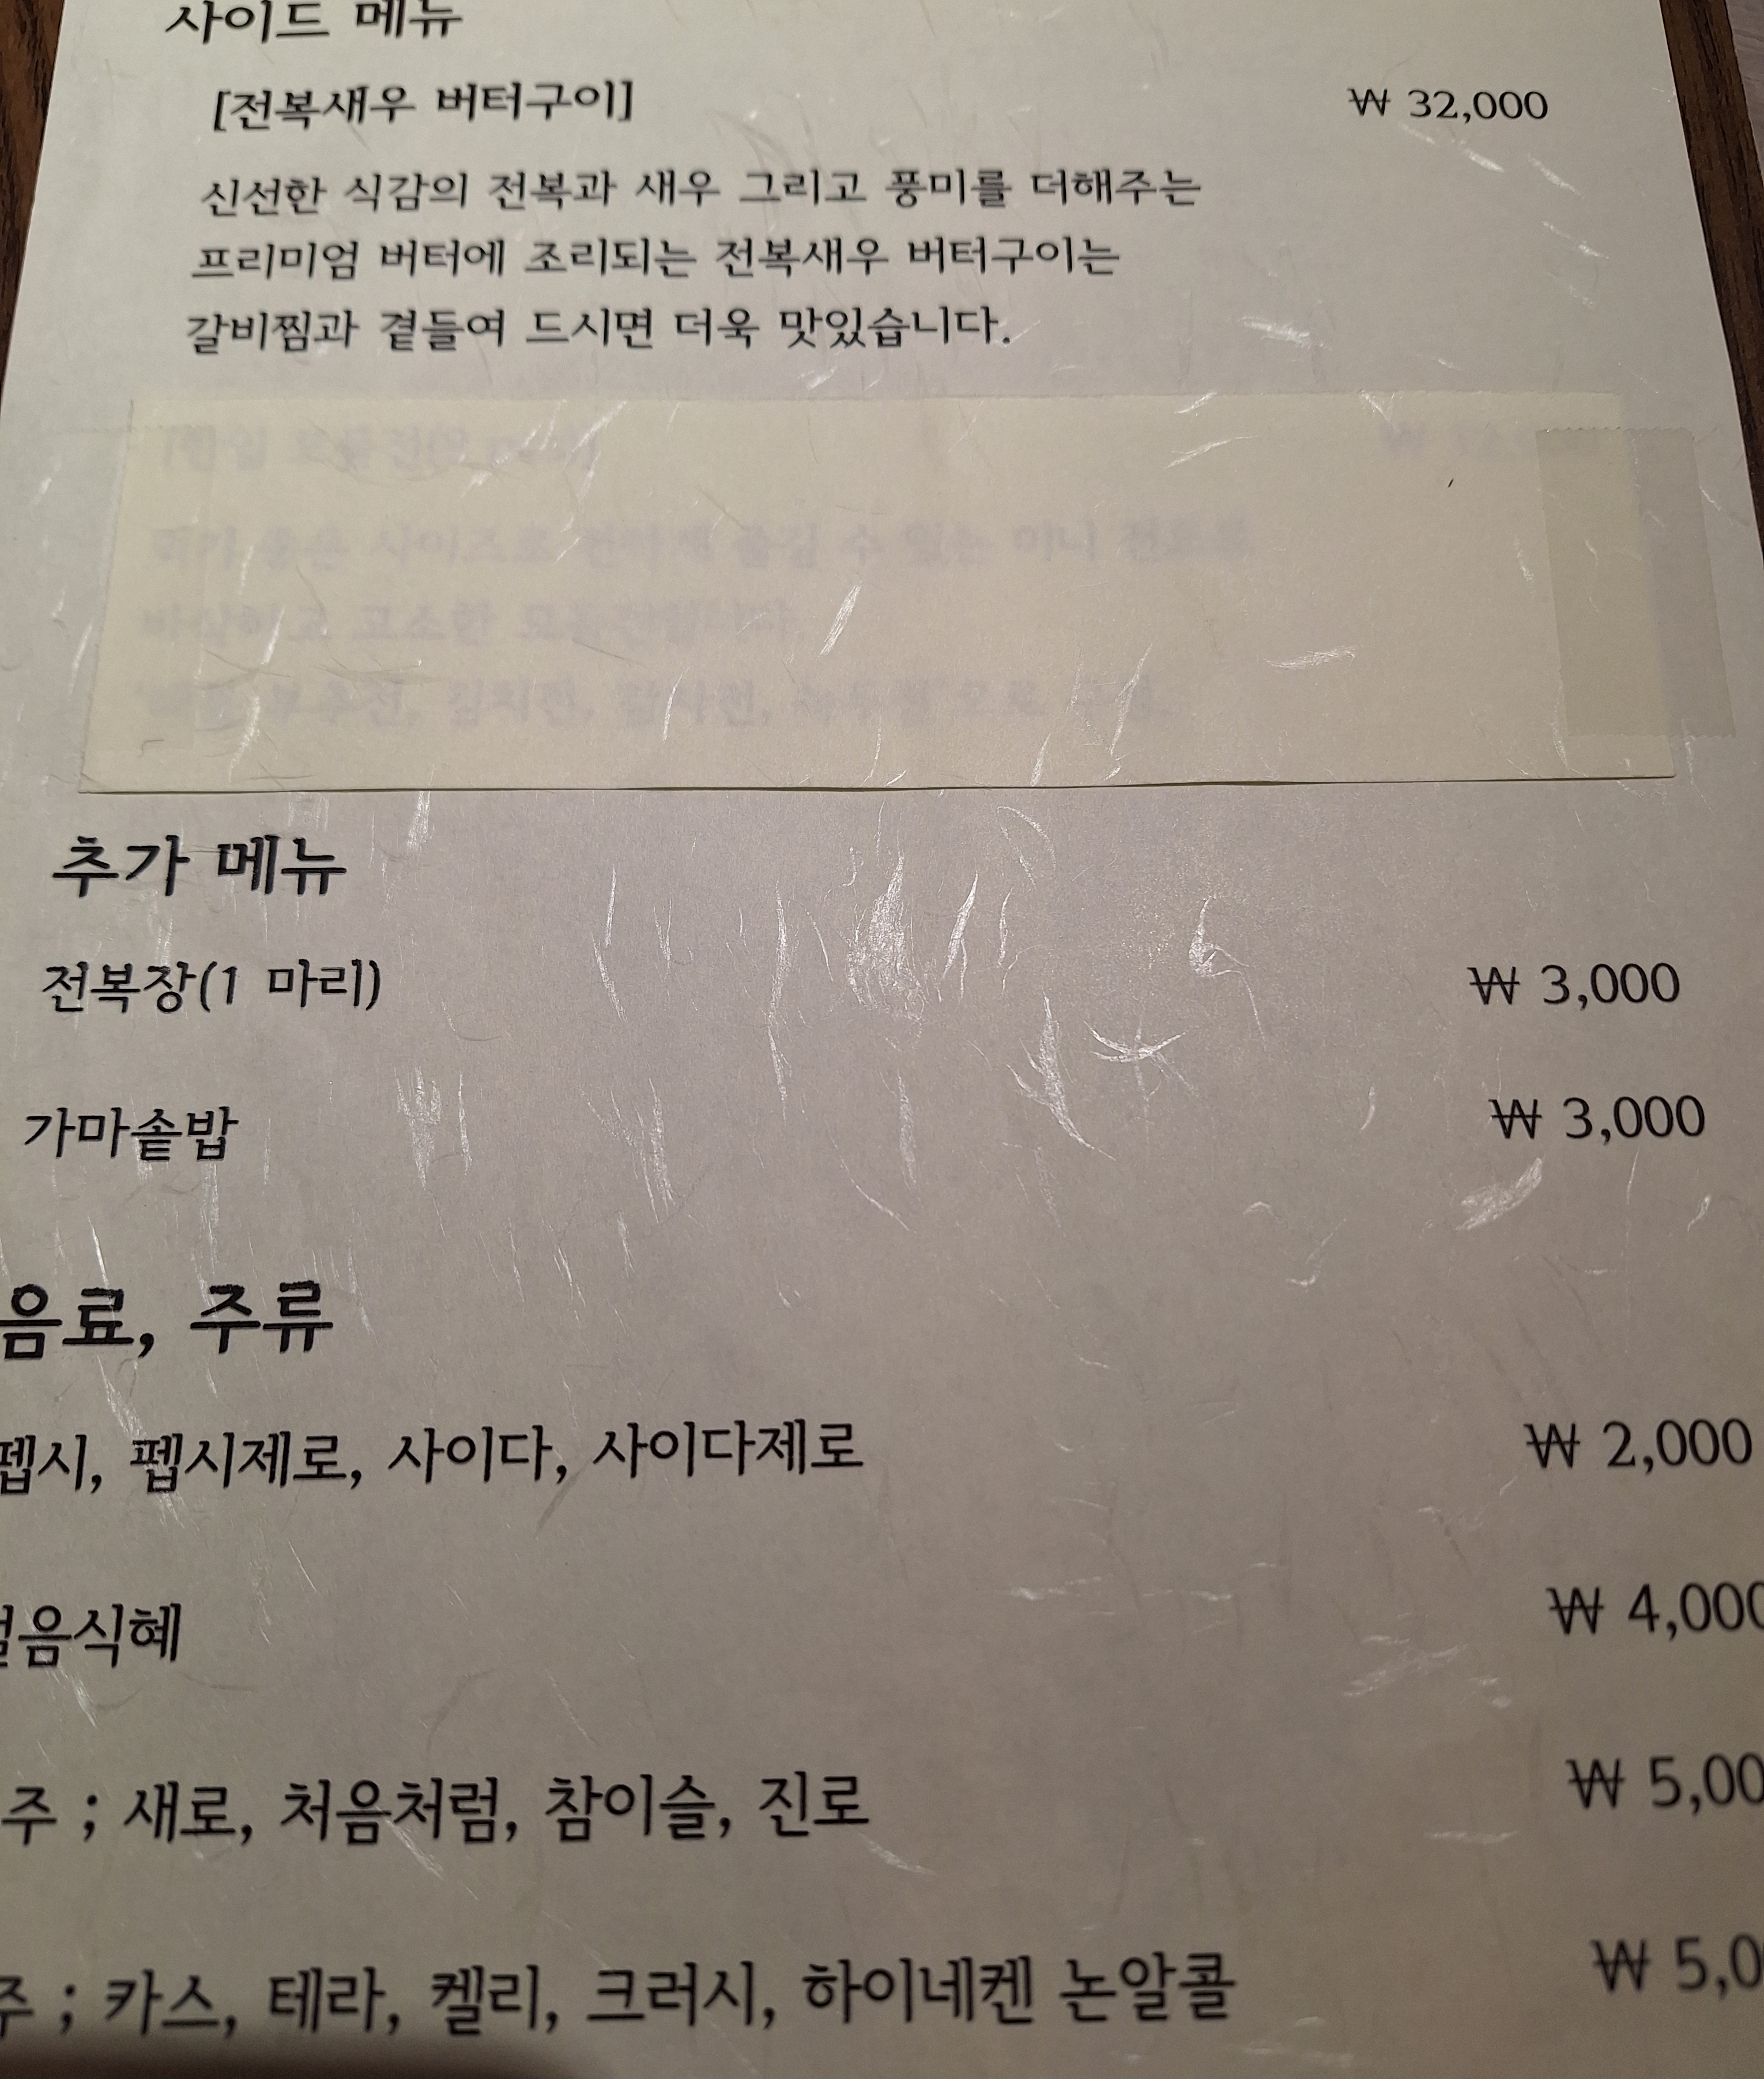 사이드 메뉴
[전복새우 버터구이] ₩ 32,000
신선한 식감의 전복과 새우 그리고 풍미를 더해주는
프리미엄 버터에 조리되는 전복새우 버터구이는
갈비찜과 곁들여 드시면 더욱 맛있습니다.
사이즈로 즐길 수 있는 미니
바삭하고 고소한
부추전, 김치전, 감자전,
추가 메뉴
전복장(1 마리) ₩ 3,000
가마솥밥 ₩ 3,000
음료, 주류
펩시, 펩시제로, 사이다, 사이다제로 ₩ 2,000
음식혜 ₩ 4,000
주 ; 새로, 처음처럼, 참이슬, 진로 ₩ 5,00
주 ; 카스, 테라, 켈리, 크러시, 하이네켄 논알콜 ₩ 5,0